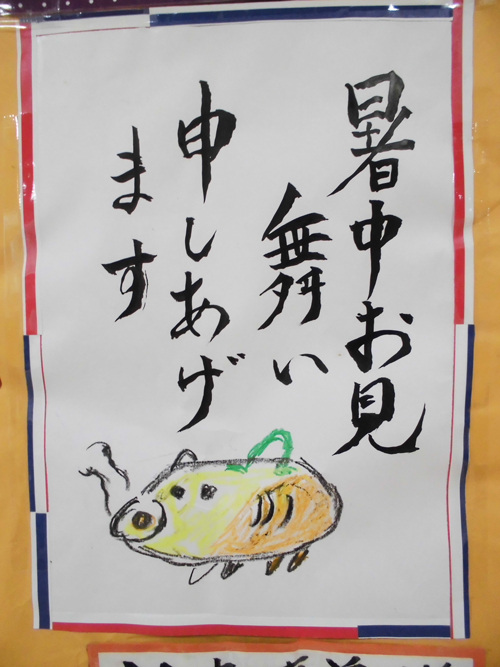 暑中お見
舞い
申しあげ
ます